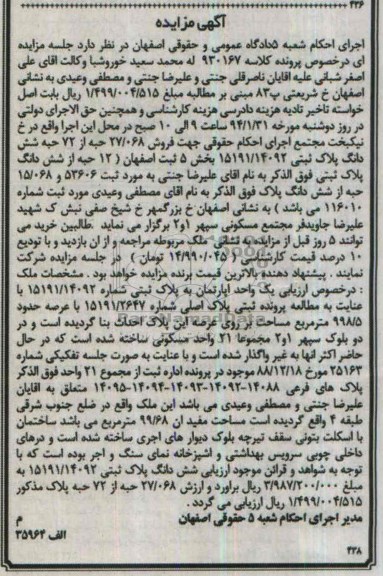 ۴۳۶
آگهی مزایده
اجرای احکام شعبه ۵دادگاه عمومی و حقوقی اصفهان در نظر دارد جلسه مزایده
ای درخصوص پرونده کلاسه ۹۳۰۱۶۷ له محمد سعید خوروشبا وکالت اقای علی
اصغر شبانی علیه اقایان ناصرقلی جنتی و علیرضا جنتی و مصطفی وعیدی به نشانی
اصفهان خ شریعتی پ۸۳ مبنی بر مطالبه مبلغ ۱/۴۹۹/۰۰۴/۵۱۵ ریال بابت اصل
خواسته تاخیر تادیه هزینه دادرسی هزینه کارشناسی و همچنین حق الاجرای دولتی
در روز دوشنبه مورخه ۹۴/۱/۳۱ ساعت ۹ الی ۱۰ صبح در محل این اجرا واقع در خ
نیکبخت مجتمع اجرای احکام حقوقی جهت فروش ۲۷/۰۶۸ حبه از ۷۲ حبه شش
دانگ پلاک ثبتی ۱۵۱۹۱/۱۴۰۹۲ بخش ۵ ثبت اصفهان ( ۱۲ حبه از شش دانگ
پلاک ثبتی فوق الذکر به نام اقای علیرضا جنتی به مورد ثبت ۵۳۶۰۶ و ۱۵/۰۶۸
حبه از شش دانگ پلاک فوق الذکر به نام اقای مصطفی وعیدی مورد ثبت شماره
۱۱۶۰۱۰ می باشد ) به نشانی اصفهان خ بزرگمهر خ شیخ صفی نبش ک شهید
علیرضا جاویدفر مجتمع مسکونی سپهر ۱و۲ برگزار می نماید .طالبین خرید می
توانند ۵ روز قبل از مزایده به نشانی ملک مربوطه مراجعه و از ان بازدید و با تودیع
۱۰ درصد قیمت کارشناسی ( ۱۴/۹۹۰/۰۴۵ تومان ) در جلسه مزایده شرکت
نمایند . پیشنهاد دهنده بالاترین قیمت برنده مزایده خواهد بود . مشخصات ملک
: درخصوص ارزیابی یک واحد اپارتمان به پلاک ثبتی شماره ۱۵۱۹۱/۱۴۰۹۲ با
عنایت به مطالعه پرونده ثبتی پلاک اصلی شماره ۱۵۱۹۱/۲۶۴۷ با عرصه حدود
۹۹۸/۵ مترمربع مساحت بر روی عرصه این پلاک احداث بنا گردیده است و در
دو بلوک سپهر ۱و۲ مجموعا ۲۱ واحد مسکونی ساخته شده است که در حال
حاضر اکثر انها به غیر واگذار شده است و با عنایت به صورت جلسه تفکیکی شماره
۲۵۱۶۳ مورخ ۸۸/۱۲/۱۸ موجود در پرونده اداره ثبت از مجموع ۲۱ واحد فوق الذکر
پلاک های فرعی ۱۴۰۸۸-۱۴۰۹۲-۱۴۰۹۳-۱۴۰۹۴-۱۴۰۹۵ متعلق به اقایان
علیرضا جنتی و مصطفی وعیدی می باشد این ملک واقع در ضلع جنوب شرقی
طبقه ۴ واقع گردیده است مساحت مفید ان ۹۹/۶۸ مترمربع می باشد ساختمان
با اسکلت بتونی سقف تیرچه بلوک دیوار های اجری ساخته شده است و درهای
داخلی چوبی سرویس بهداشتی و اشپزخانه نمای سنگ و اجر بوده است که با
توجه به شواهد و قرائن موجود ارزیابی شش دانگ پلاک ثبتی ۱۵۱۹۱/۱۴۰۹۲ به
مبلغ ۳/۹۸۷/۲۰۰/۰۰۰ ریال براورد و ارزش ۲۷/۰۶۸ حبه از ۷۲ حبه پلاک مذکور
۱/۴۹۹/۰۰۴/۵۱۵ ریال ارزیابی می گردد .
مدیر اجرای احکام شعبه ۵ حقوقی اصفهان م
الف ۳۵۹۶۴
۴۳۸